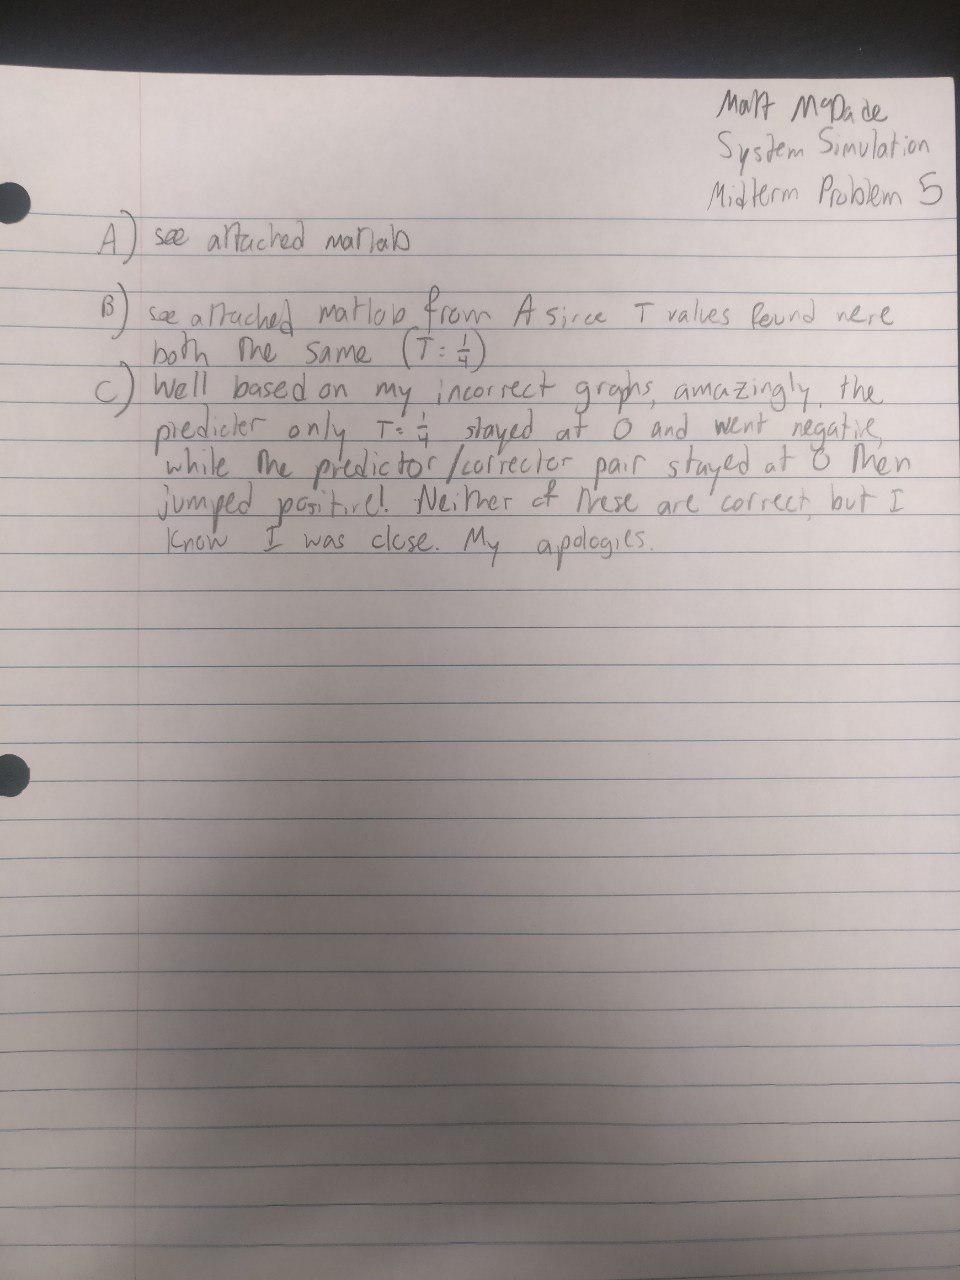 Matt McDade
System Simulation
Midterm Problem 5
A) see attached matlab
B) see attached matlab from A since T values found were
both the same (T = 1/4)
C) Well based on my incorrect graphs, amazingly, the
predicter only T = 1/4 stayed at 0 and went negative,
while the predictor/corrector pair stayed at 0 then
jumped positive! Neither of these are correct, but I
know I was close. My apologies.